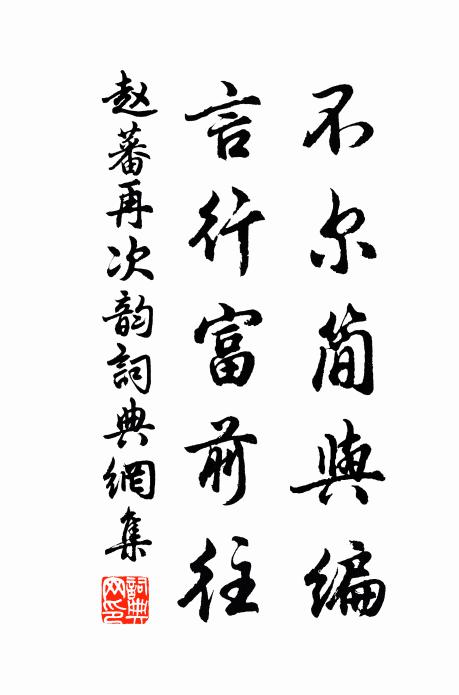 不尔简与编
言行富前往
赵蕃再次韵詞典網集
詞典网印